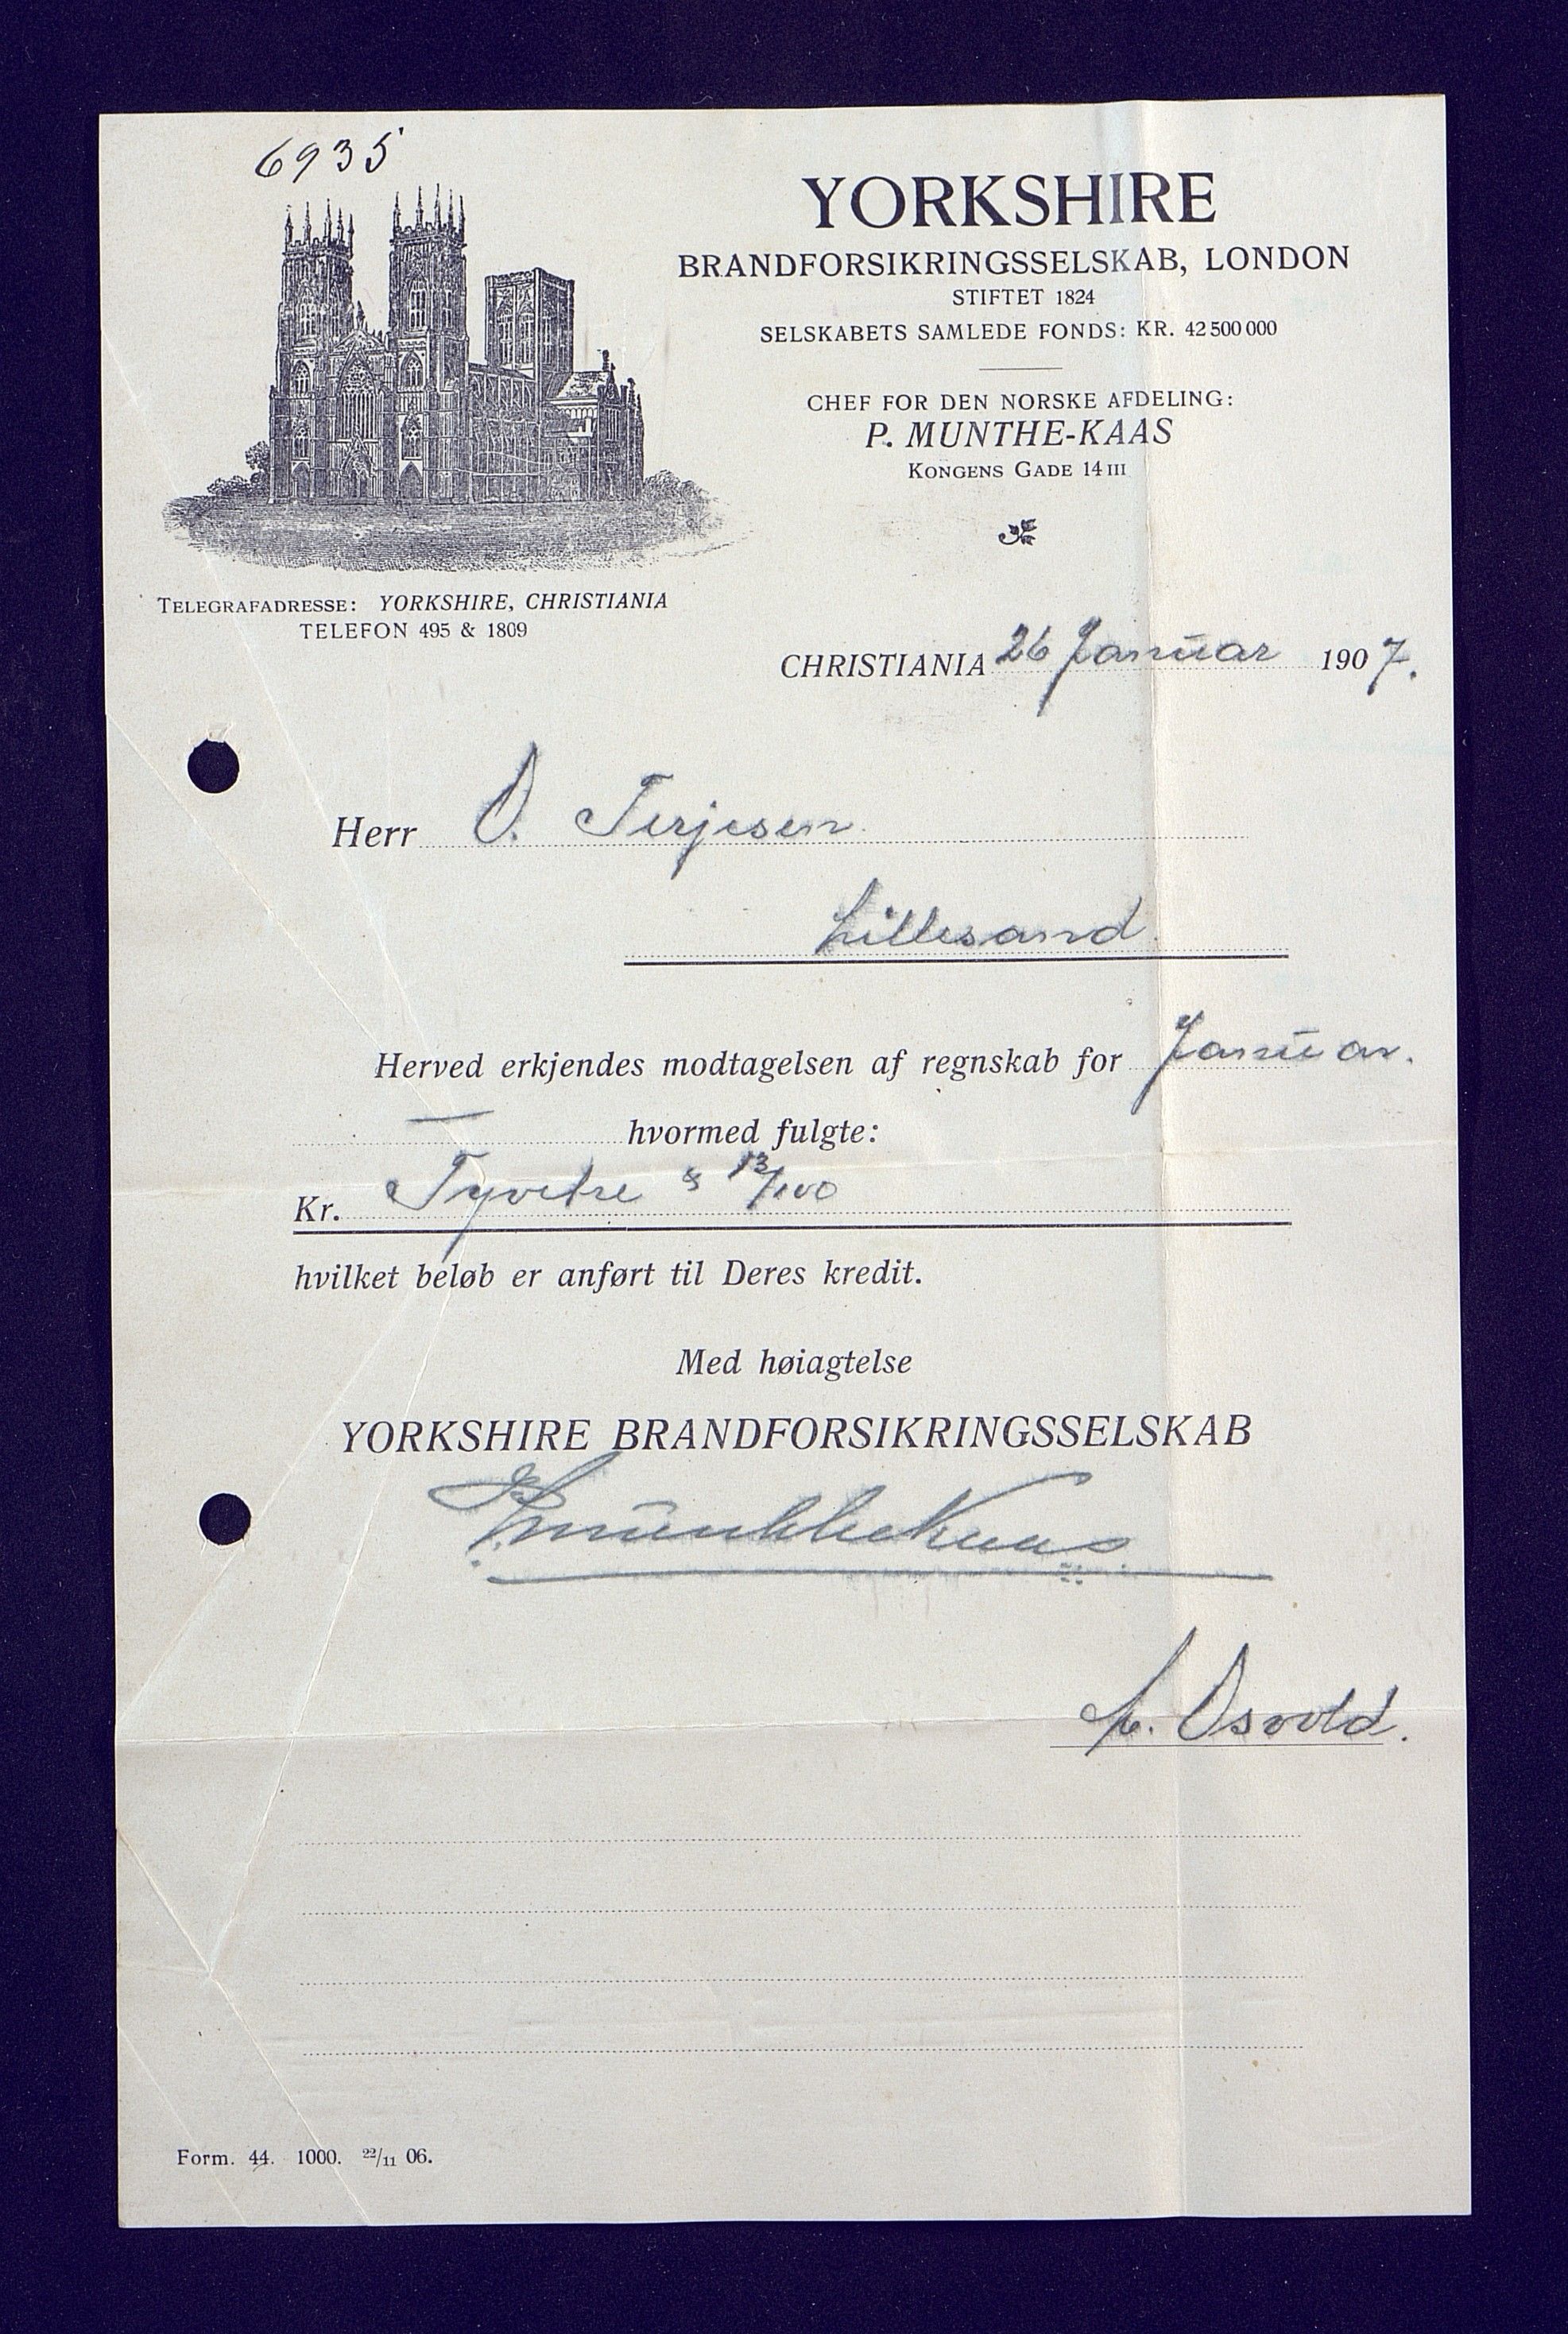 6935
YORKSHIRE
BRANDFORSIKRINGSSELSKAB, LONDON
STIFTET 1824
SELSKABETS SAMLEDE FONDS: KR. 42 500 000
CHEF FOR DEN NORSKE AFDELING:
P. MUNTHE-KAAS
KONGENS GADE 14 III
TELEGRAFADRESSE: YORKSHIRE, CHRISTIANIA
TELEFON 495 & 1809
CHRISTIANIA 26 Januar 1907.
Herr O. Terjesen
Lillesand
Herved erkjendes modtagelsen af regnskab for Januar.
— hvormed fulgte:
Kr. Tyvetre & 13/100
hvilket beløb er anført til Deres kredit.
Med høiagtelse
YORKSHIRE BRANDFORSIKRINGSSELSKAB
P. Munthe Kaas
Osvold.
Form. 44. 1000. 22/11 06.